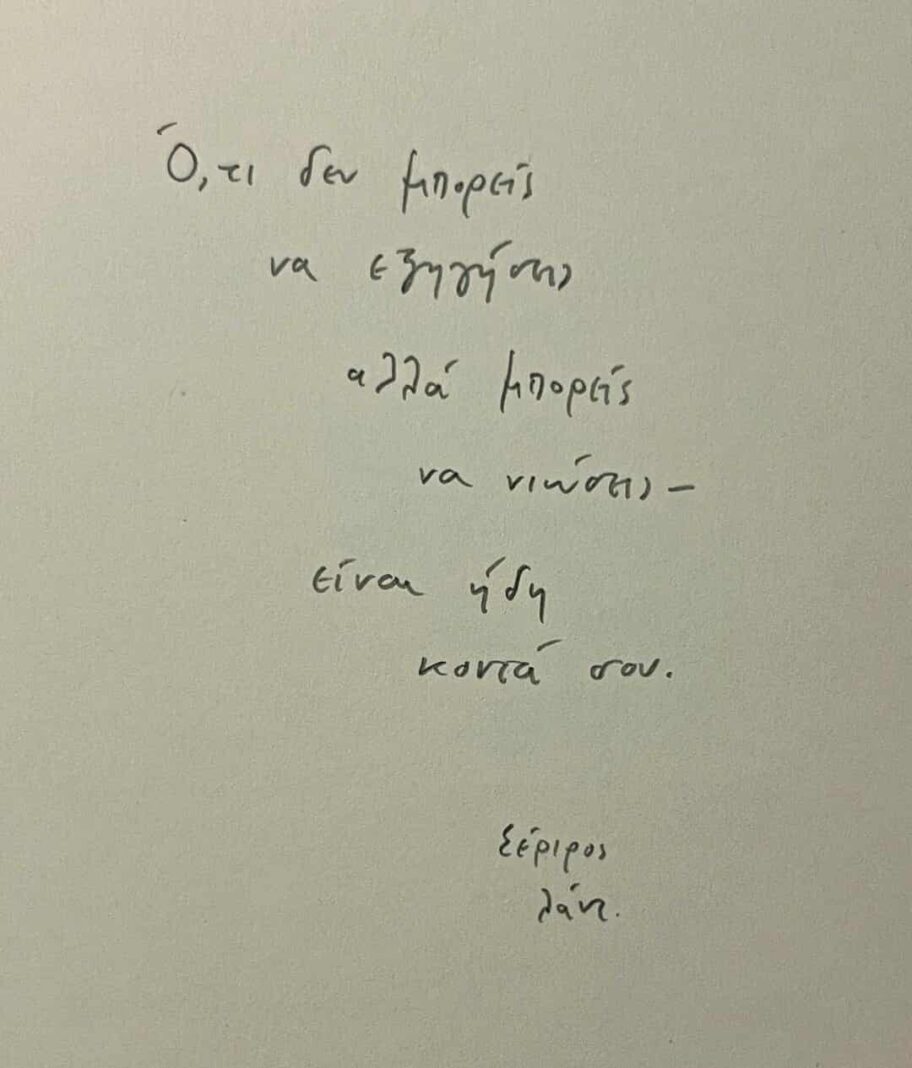 Ό,τι δεν μπορείς
να εξηγήσεις
αλλά μπορείς
να νιώσεις –
είναι ήδη
κοντά σου.
ξέριρος
λάντ.